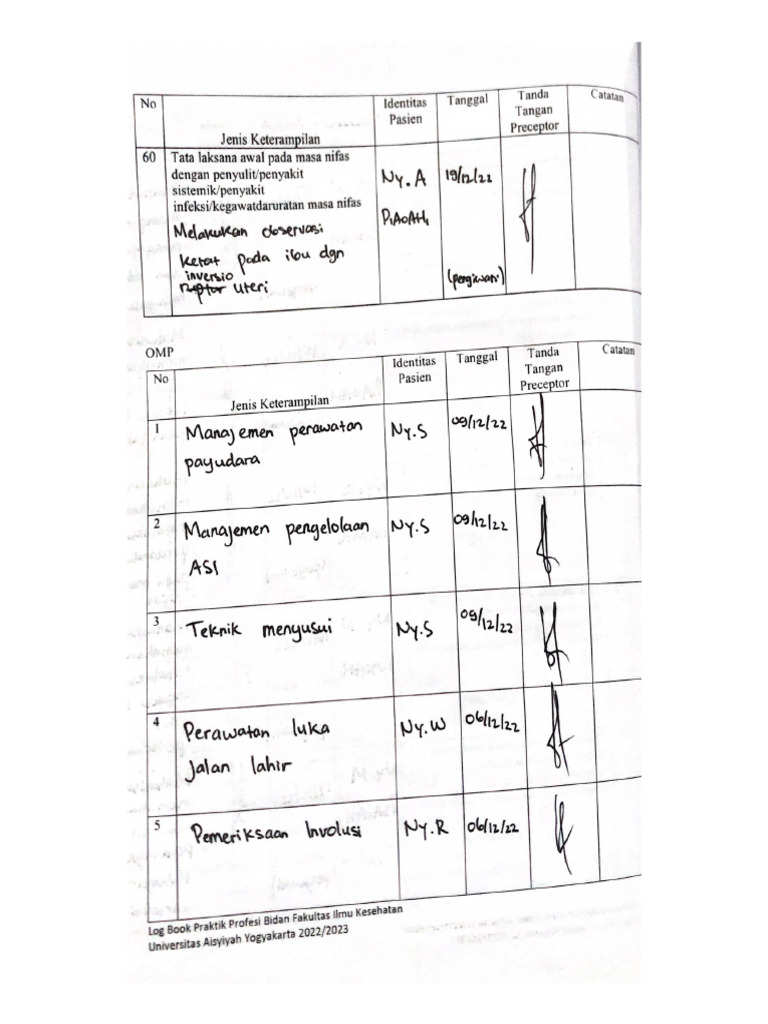 No Jenis Keterampilan Identitas Pasien Tanggal Tanda Tangan Preceptor Catatan
60 Tata laksana awal pada masa nifas
dengan penyulit/penyakit
sistemik/penyakit
infeksi/kegawatdaruratan masa nifas
Melakukan observasi
ketat pada ibu dgn
inversio
ruptur uteri
Ny. A
P1A0AH1
19/12/22
OMP
No Jenis Keterampilan Identitas Pasien Tanggal Tanda Tangan Preceptor Catatan
1 Manajemen perawatan Ny. S 09/12/22
payudara
2 Manajemen pengelolaan Ny. S 09/12/22
ASI
3 Teknik menyusui Ny. S 09/12/22
4 Perawatan luka Ny. W 06/12/22
Jalan lahir
5 Pemeriksaan Involusi Ny. R 06/12/22
Log Book Praktik Profesi Bidan Fakultas Ilmu Kesehatan
Universitas Aisyiyah Yogyakarta 2022/2023